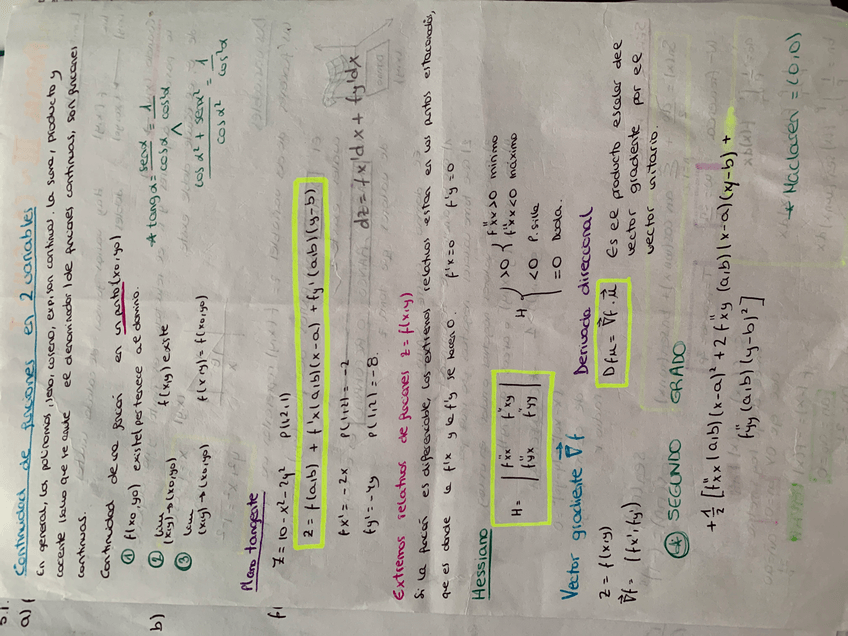 5.1.
a)
Continuidad de funciones en 2 variables
En general, los polinomios, seno, coseno, exp. son continuas. La suma, producto y
cociente (salvo que se anule el denominador) de funciones continuas, son funciones
continuas.
Continuidad de una función en un punto (x0,y0)
① f(x0,y0) existe/pertenece al dominio.
② lim (x,y)→(x0,y0) f(x,y) existe
③ lim (x,y)→(x0,y0) f(x,y) = f(x0,y0)
* tang α = senx/cos α = 1/cos²α
cos α² + senx²/cos α² = 1/cos²α
b)
Plano tangente
z = 10 - x² - 2y² P(1,2,1)
z = f(a,b) + f'x(a,b)(x-a) + fy'(a,b)(y-b)
fx' = -2x P(1,2) = -2
fy' = -4y P(1,2) = -8.
dz = fx'dx + fy'dx
Extremos relativos de funciones z = f(x,y)
Si la función es diferenciable, los extremos relativos están en los puntos estacionarios,
que es donde la f'x y la f'y se hacen 0. f'x=0 f'y=0
Hessiano
H = | f''xx f''xy |
| f''yx f''yy |
H { >0 { f''xx>0 mínimo
f''xx<0 máximo
<0 P. silla
=0 Duda.
Vector gradiente ∇f
z = f(x,y)
∇f = (fx', fy')
Derivada direccional
Dfμ = ∇f · μ
Es el producto escalar del
vector gradiente por el
vector unitario.
SEGUNDO GRADO
+ 1/2 [f''xx (a,b)(x-a)² + 2 f''xy (a,b)(x-a)(y-b) +
f''yy (a,b)(y-b)²]
* Maclaren = (0,0)